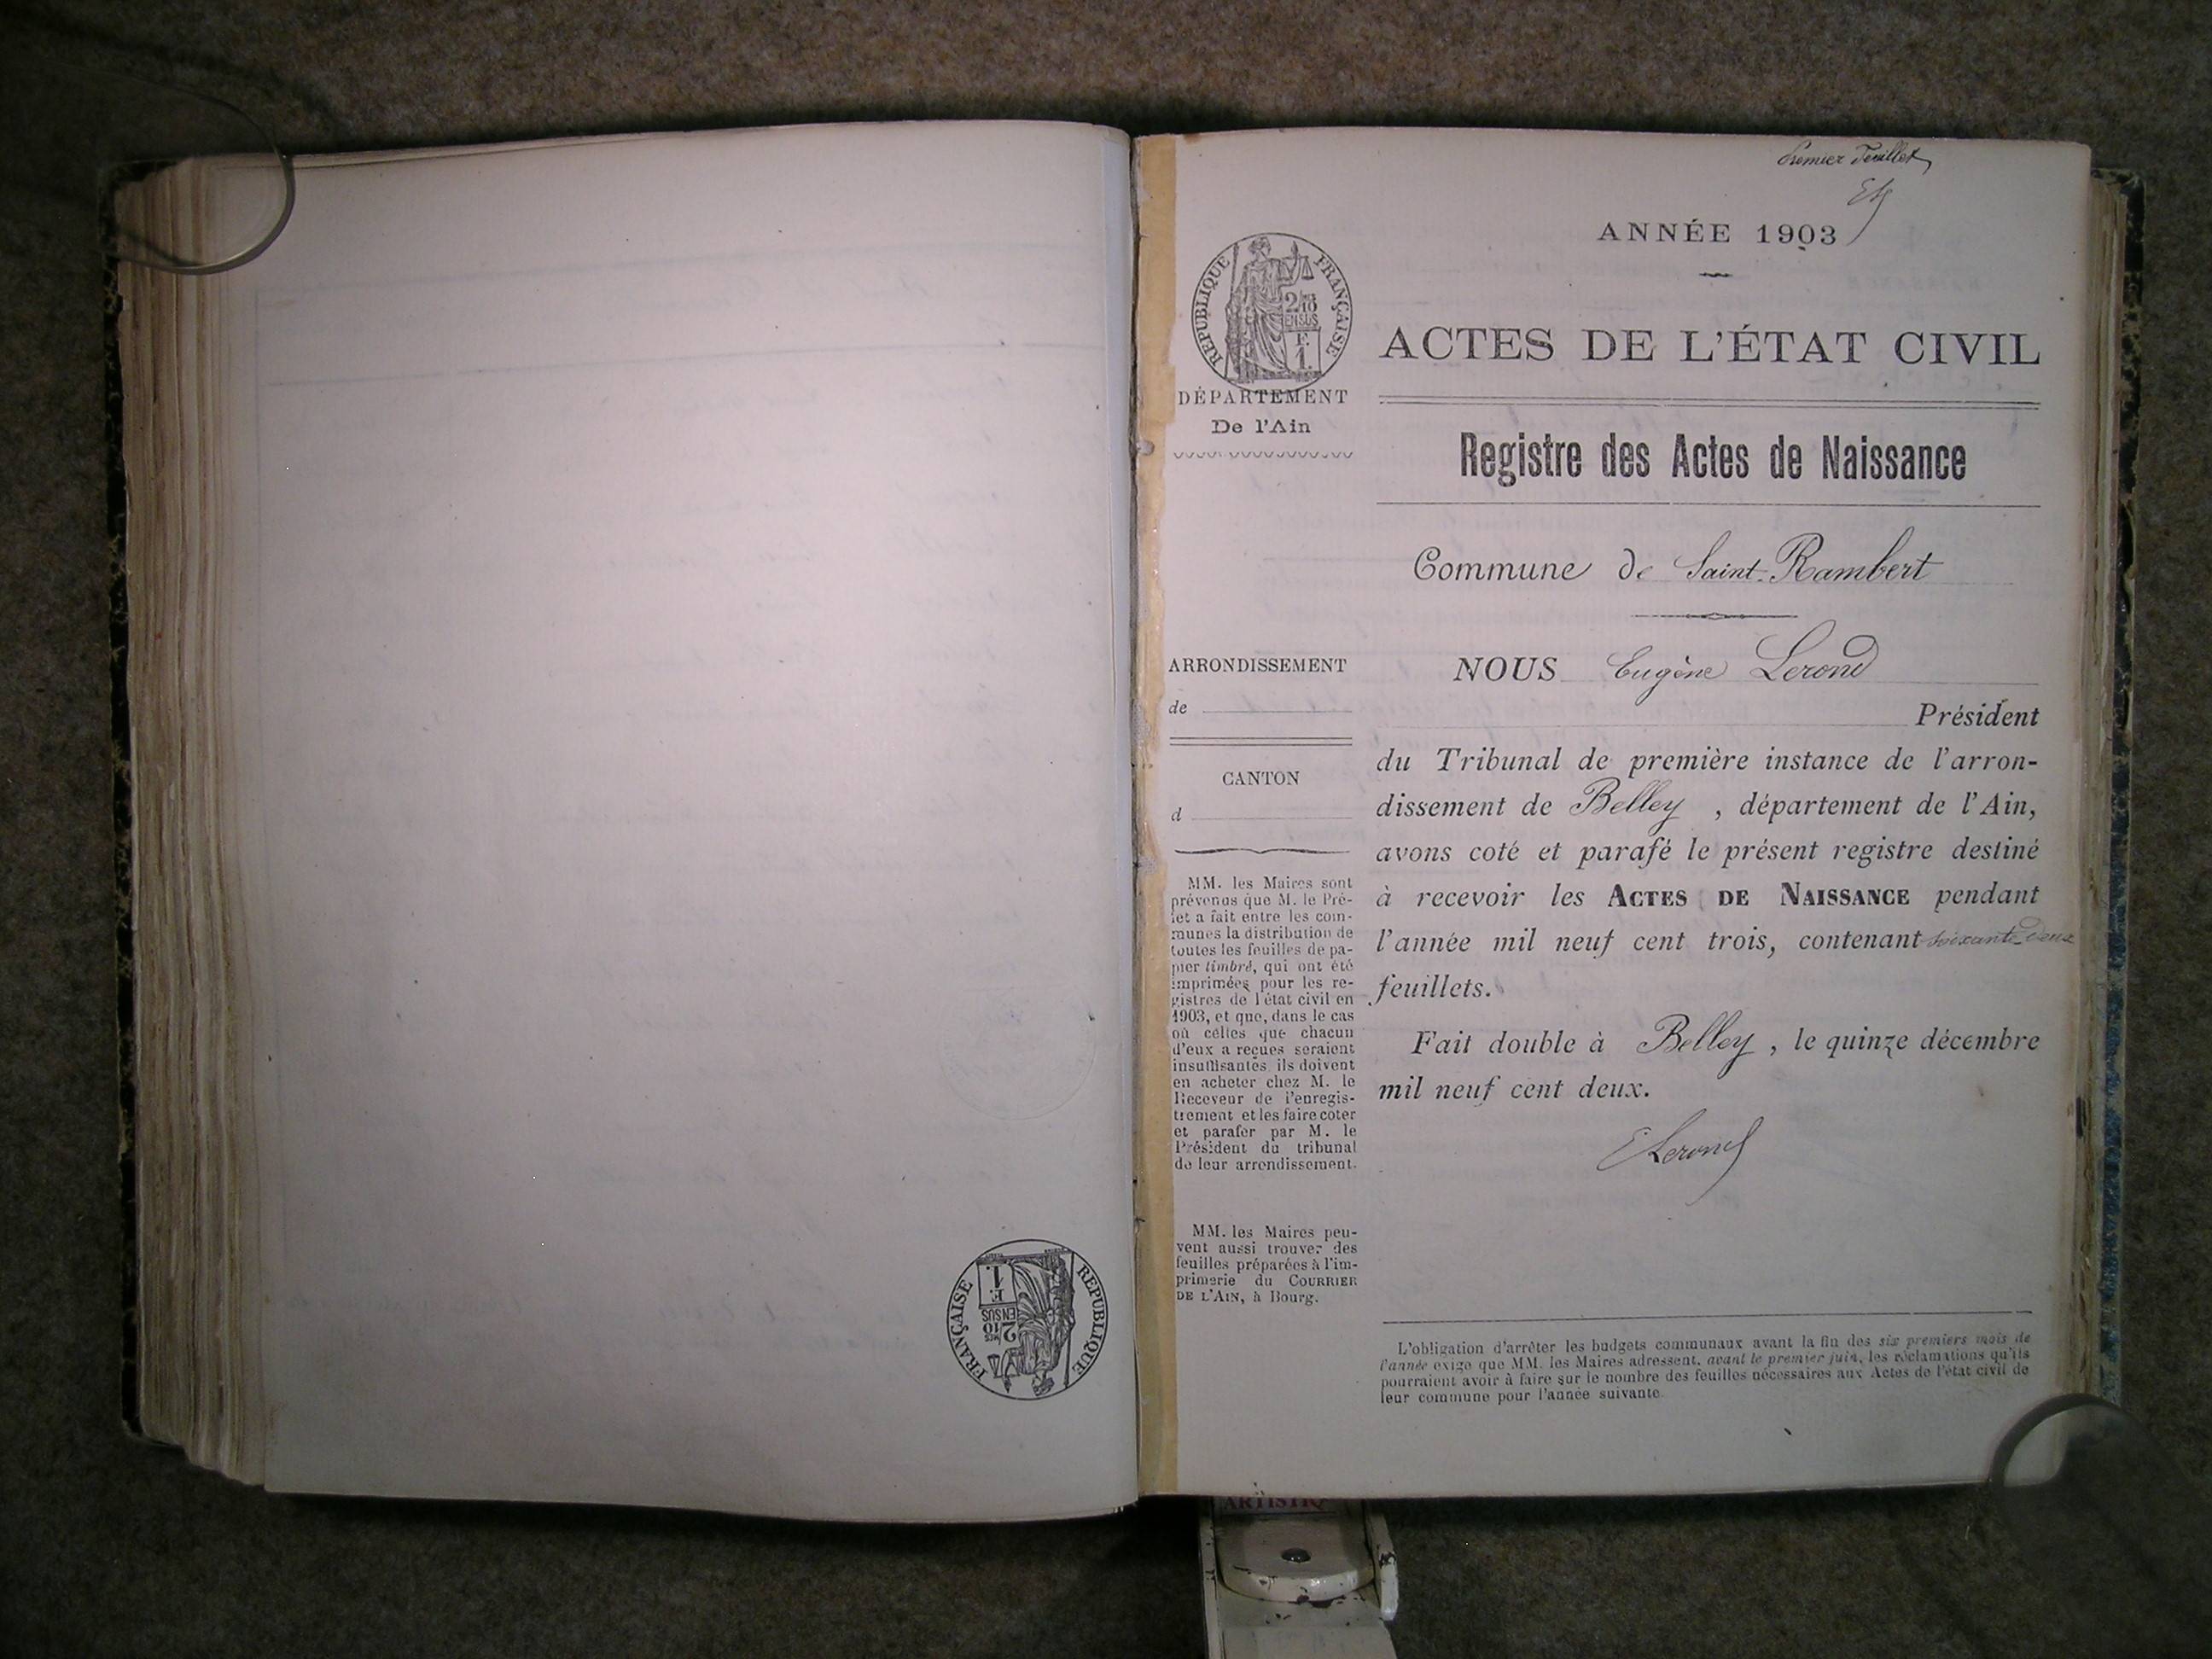 Premier Feuillet
ANNÉE 1903
RÉPUBLIQUE FRANÇAISE
2/10
EN SUS
F.
1.
ACTES DE L'ÉTAT CIVIL
DÉPARTEMENT
De l'Ain
Registre des Actes de Naissance
Commune de Saint-Rambert
ARRONDISSEMENT
de
CANTON
d
MM. les Maires sont
prévenus que M. le Pré-
fet a fait entre les com-
munes la distribution de
toutes les feuilles de pa-
pier timbré, qui ont été
imprimées pour les re-
gistres de l'état civil en
1903, et que, dans le cas
où celles que chacun
d'eux a reçues seraient
insuffisantes, ils doivent
en acheter chez M. le
Receveur de l'enregis-
trement et les faire coter
et parafer par M. le
Président du tribunal
de leur arrondissement.
MM. les Maires peu-
vent aussi trouver des
feuilles préparées à l'im-
primerie du COURRIER
DE L'AIN, à Bourg.
NOUS Eugène Lerond
Président
du Tribunal de première instance de l'arron-
dissement de Belley, département de l'Ain,
avons coté et parafé le présent registre destiné
à recevoir les ACTES DE NAISSANCE pendant
l'année mil neuf cent trois, contenant soixante-deux
feuillets.
Fait double à Belley, le quinze décembre
mil neuf cent deux.
E Lerond
L'obligation d'arrêter les budgets communaux avant la fin des six premiers mois de
l'année exige que MM. les Maires adressent, avant le premier juin, les réclamations qu'ils
pourraient avoir à faire sur le nombre des feuilles nécessaires aux Actes de l'état civil de
leur commune pour l'année suivante.
RÉPUBLIQUE FRANÇAISE
2/10
EN SUS
F.
1.
ARTISTIQ